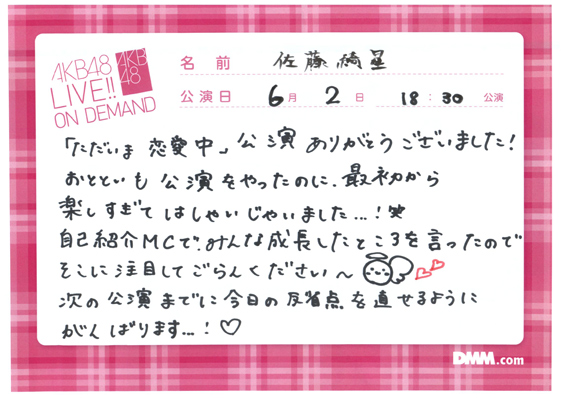 AKB48
LIVE!!
ON DEMAND
AKB
48
名前 佐藤綺星
公演日 6月 2日 18:30 公演
「ただいま 恋愛中」公演 ありがとうございました!
おとといも 公演をやったのに、最初から
楽しすぎて はしゃいじゃいました…!
自己紹介MCで、みんな成長したところを言ったので
そこに注目してごらんください〜
次の公演までに今日の反省点を直せるように
がんばります…!♡
DMM.com